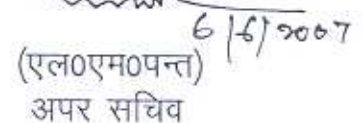 6/6/2007
(एल0एम0पन्त)
अपर सचिव